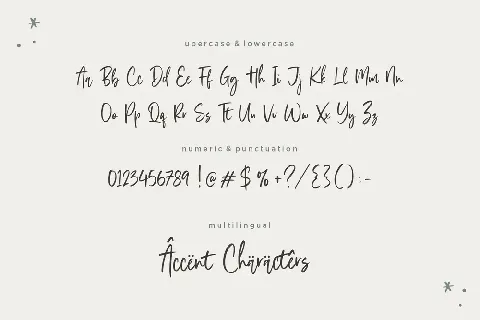 uppercase & lowercase
Aa Bb Cc Dd Ee Ff Gg Hh Ii Jj Kk Ll Mm Nn
Oo Pp Qq Rr Ss Tt Uu Vv Ww Xx Yy Zz
numeric & punctuation
0123456789 !@#$%+?/{}():-
multilingual
Âccënt Chäräctêrs